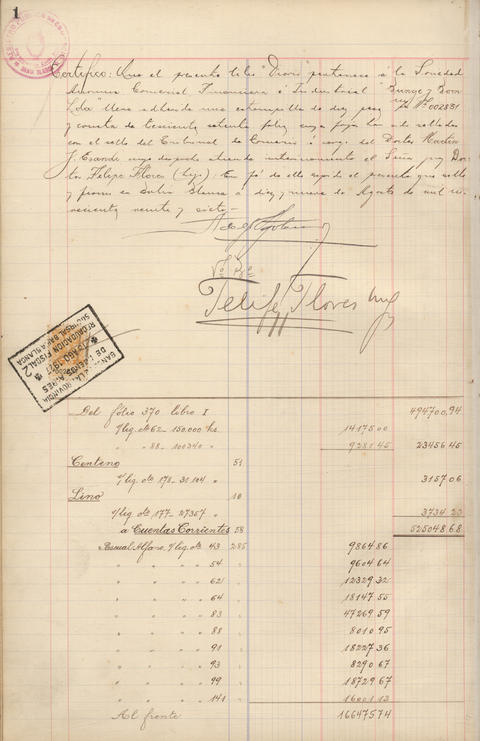 1
Certifico: Que el presente libro "Diario" pertenece á la Sociedad
Anonima Comercial Financiera é Industrial "Bunge y Born
Lda" lleva adherida una estampilla de diez pesos Nº 002881
y consta de trescientos setenta folios cuyas fojas han sido selladas
con el sello del Tribunal de Comercio á cargo del Doctor
J. Eliande cuyo despacho atiende interinamente el Señor Juez Doc-
tor Felipe Flores (hijo). En fé de ello expido el presente que sello
y firmo en Bahía Blanca á diez y nueve de Agosto de mil no-
vecientos veinte y siete.-
Vº Bº
Felipe Flores hijo
DE LA PROVINCIA
DE BUENOS AIRES
AGO. 1927
RECAUDACION FISCAL 2
SUCURSAL BAHIA BLANCA
Del fólio 370 libro I 494700,94
s/liq. dto 62-150.000 ks. 14175 00
" " 88-100340 " 9281 45 23456 45
Centeno 51
s/liq. dto 178-31104 " 3157 06
Lino 10
s/liq. dto 177-27357 " 3734 23
a Cuentas Corrientes 58 525048,68
Pascual Alfaro, s/liq. dto 43 285 9864 86
" " " 54 " 9604 64
" " " 62 " 12329 32
" " " 64 " 18147 55
" " " 83 " 47269 59
" " " 88 " 8010 95
" " " 91 " 18227 36
" " " 93 " 8290 67
" " " 99 " 18729 67
" " " 141 " 16001 13
Al frente 166475 74